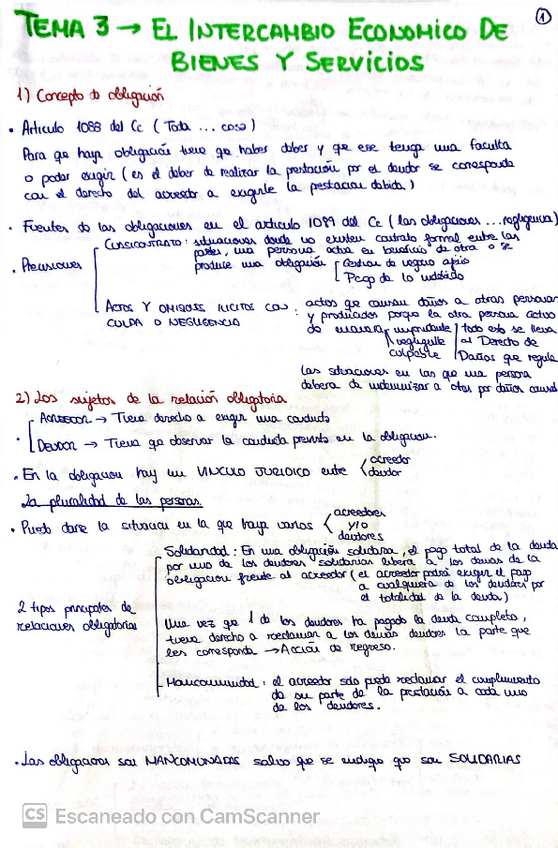 TEMA 3 → EL INTERCAMBIO ECONOMICO DE
BIENES Y SERVICIOS
1
1) Concepto de obligación
• Artículo 1088 del Cc ( Toda ... cosa )
Para que haya obligación tiene que haber deber y que ese tenga una faculta
o poder exigir ( es el deber de realizar la prestación por el deudor se corresponde
con el derecho del acreedor a exigirle la prestación debida )
• Fuentes de las obligaciones en el artículo 1089 del Cc ( las obligaciones ... negligencia )
• Precisiones
CUASICONTRATO : situaciones donde no existen contrato formal entre las
partes, una persona actua en beneficio de otra o se
produce una obligación
Gestion de negocio ajeno
Pago de lo indebido
ACTOS Y OMISIONES ILICITOS CON : actos que causan daños a otras personas
CULPA O NEGLIGENCIA
y producidos porque la otra persona actuo
de manera imprudente
negligente
culpable
todo esto se lleva
al Derecho de
Daños que regula
las situaciones en las que una persona
debera de indemnizar a otas por daños causad
2) Los sujetos de la relación obligatoria
• ACREEDOR → Tiene derecho a exigir una conducta
DEUDOR → Tiene que observar la conducta prevista en la obligacion.
• En la obligacion hay un VINCULO JURIDICO entre
acreedor
deudor
La pluralidad de las personas.
• Puede darse la situacion en la que haya varios
acreedores
y/o
deudores
2 tipos principales de
relaciones obligatorias
Solidaridad : En una obligación solidaria, el pago total de la deuda
por uno de los deudores solidarios libera a los demas de la
obligacion frente al acreedor ( el acreedor podrá exigir el pago
a cualquiera de los deudores por
el totalidad de la deuda )
Una vez que 1 de los deudores ha pagado la deuda completa,
tiene derecho a reclamar a los demas deudores la parte que
les corresponda → Acción de regreso.
Mancomunidad : el acreedor solo puede reclamar el cumplimiento
de su parte de la prestación a cada uno
de los deudores.
• Las obligaciones son MANCOMUNADAS salvo que se indique que son SOLIDARIAS
CS Escaneado con CamScanner